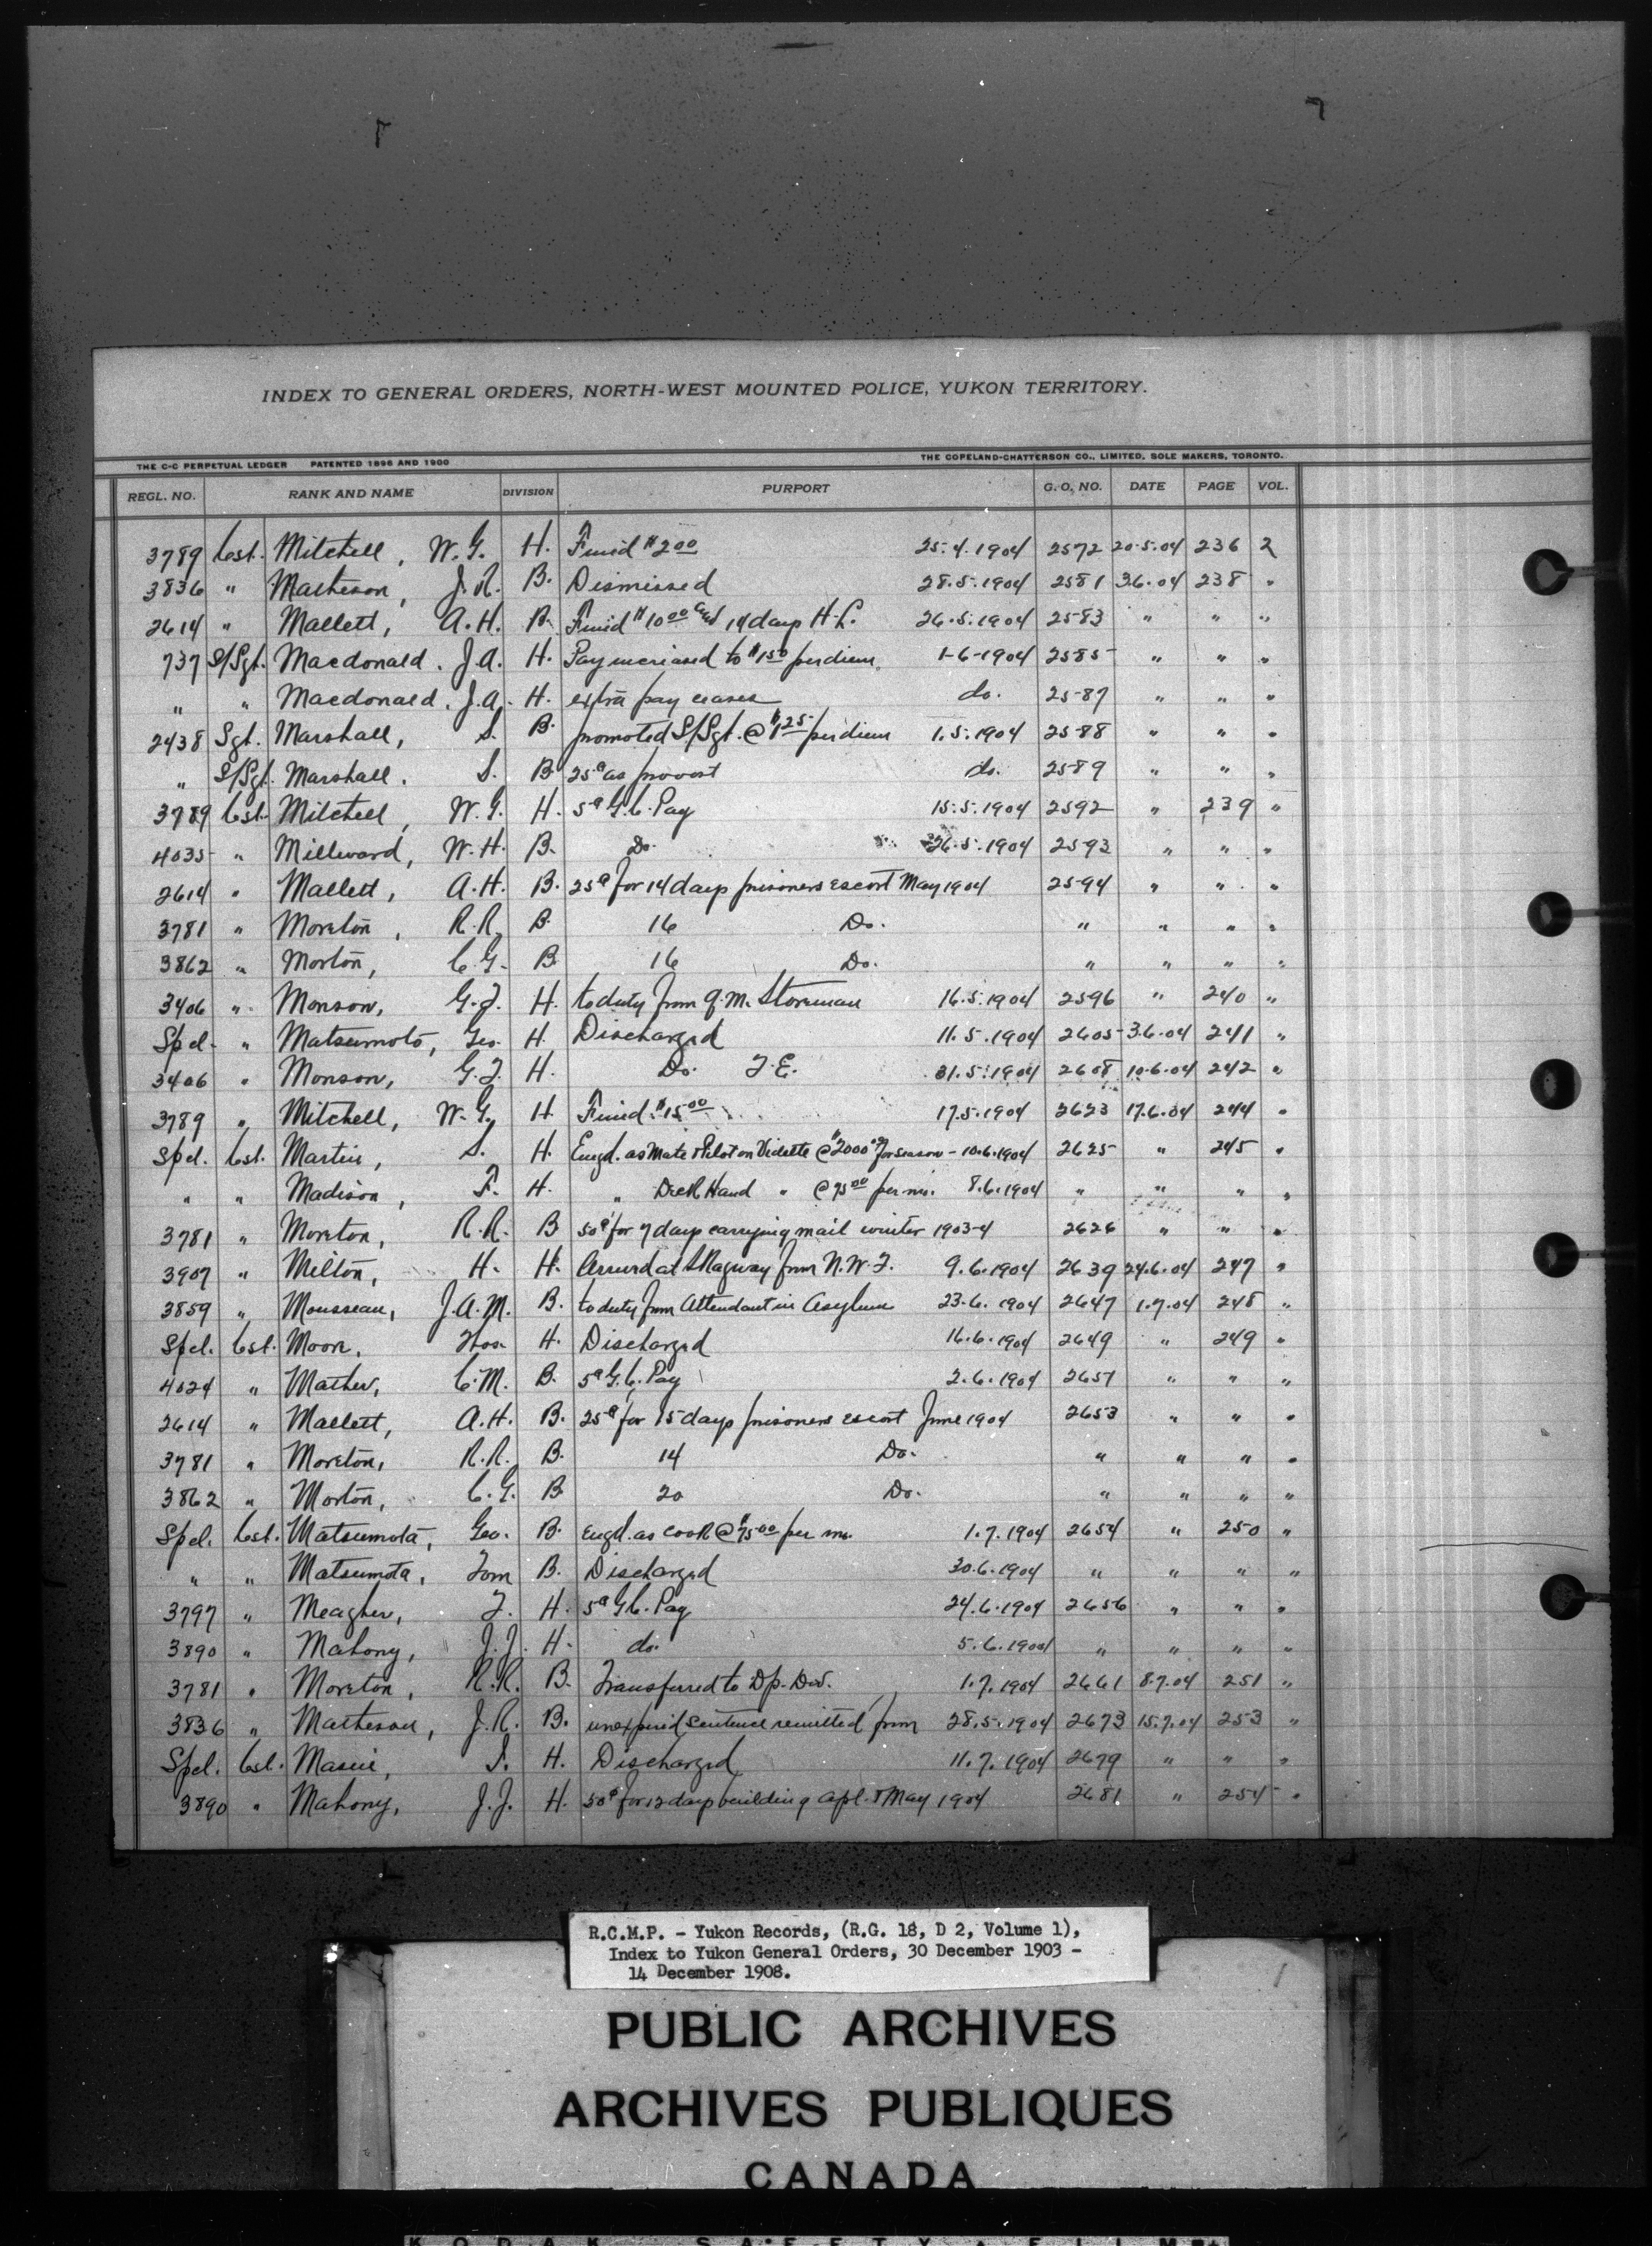 INDEX TO GENERAL ORDERS, NORTH-WEST MOUNTED POLICE, YUKON TERRITORY.
THE C-C PERPETUAL LEDGER PATENTED 1896 AND 1900 THE COPELAND-CHATTERSON CO., LIMITED, SOLE MAKERS, TORONTO.
REGL. NO. RANK AND NAME DIVISION PURPORT G.O. NO. DATE PAGE VOL.
3789 Cst. Mitchell, W.G. H. Fined $2.00 25.4.1904 2572 20.5.04 236 2
3836 " Matheson, J.R. B. Dismissed 28.5.1904 2581 3.6.04 238 "
2614 " Mallett, A.H. B. Fined $10.00 and 14 days H.L. 26.5.1904 2583 " " "
737 S/Sgt. Macdonald. J.A. H. Pay increased to $1.50 per diem. 1-6-1904 2585 " " "
" " Macdonald. J.A. H. extra pay ceases do. 2587 " " "
2438 Sgt. Marshall, S. B. promoted S/Sgt. @ $1.25 per diem 1.5.1904 2588 " " "
" S/Sgt. Marshall. S. B 25¢ as provost do. 2589 " " "
3789 Cst. Mitchell, W.G. H. 5¢ G.C. Pay 15.5.1904 2592 " 239 "
4035 " Millward, W.H. B. Do. 26.5.1904 2593 " " "
2614 " Mallett, A.H. B. 25¢ for 14 days prisoners escort May 1904 2594 " " "
3781 " Moreton, R.R. B. 16 Do. " " " "
3862 " Morton, C.G. B 16 Do. " " " "
3406 " Monson, G.J. H. to duty from Q.M. Storeman 16.5.1904 2596 " 240 "
Spcl. " Matsumoto, Geo. H. Discharged 11.5.1904 2605 3.6.04 241 "
3406 " Monson, G.J. H. Do. T.E. 31.5.1904 2608 10.6.04 242 "
3789 " Mitchell, W.G. H Fined $15.00 17.5.1904 2623 17.6.04 244 "
Spcl. Cst. Martin, S. H. Engd. as Mate & Pilot on Vidette @ $2000 for season - 10.6.1904 2625 " 245 "
" " Madison, F. H. " Deck Hand " @ 75.00 per mo. 8.6.1904 " " " "
3781 " Moreton, R.R. B 50¢ for 7 days carrying mail winter 1903-4 2626 " " "
3907 " Milton, H. H. Arrived at Skagway from N.W.T. 9.6.1904 2639 24.6.04 247 "
3859 " Mousseau, J.A.M. B. to duty from Attendant in Asylum 23.6.1904 2647 1.7.04 248 "
Spcl. Cst. Moore, Thos. H. Discharged 16.6.1904 2649 " 249 "
4024 " Mather, C.M. B. 5¢ G.C. Pay 2.6.1904 2651 " " "
2614 " Mallett, A.H. B. 25¢ for 15 days prisoners escort June 1904 2653 " " "
3781 " Moreton, R.R. B. 14 Do. " " " "
3862 " Morton, C.G. B 20 Do. " " " "
Spcl. Cst. Matsumota, Geo. B. Engd. as cook @ $75.00 per mo. 1.7.1904 2654 " 250 "
" " Matsumota, Tom B. Discharged 30.6.1904 " " " "
3797 " Meagher, T. H. 5¢ G.C. Pay 24.6.1904 2656 " " "
3890 " Mahony, J.J. H. do. 5.6.1904 " " " "
3781 " Moreton, R.R. B. Transferred to Dp. Div. 1.7.1904 2661 8.7.04 251 "
3836 " Matheson, J.R. B. unexpired sentence remitted from 28.5.1904 2673 15.7.04 253 "
Spcl. Cst. S. H. Discharged 11.7.1904 2679 " " "
3890 " Mahony, J.J. H. 50¢ for 12 days building Apl. & May 1904 2681 " 254 "
R.C.M.P. - Yukon Records, (R.G. 18, D 2, Volume 1),
Index to Yukon General Orders, 30 December 1903 -
14 December 1908.
PUBLIC ARCHIVES
ARCHIVES PUBLIQUES
CANADA
KODAK SAFETY FILM